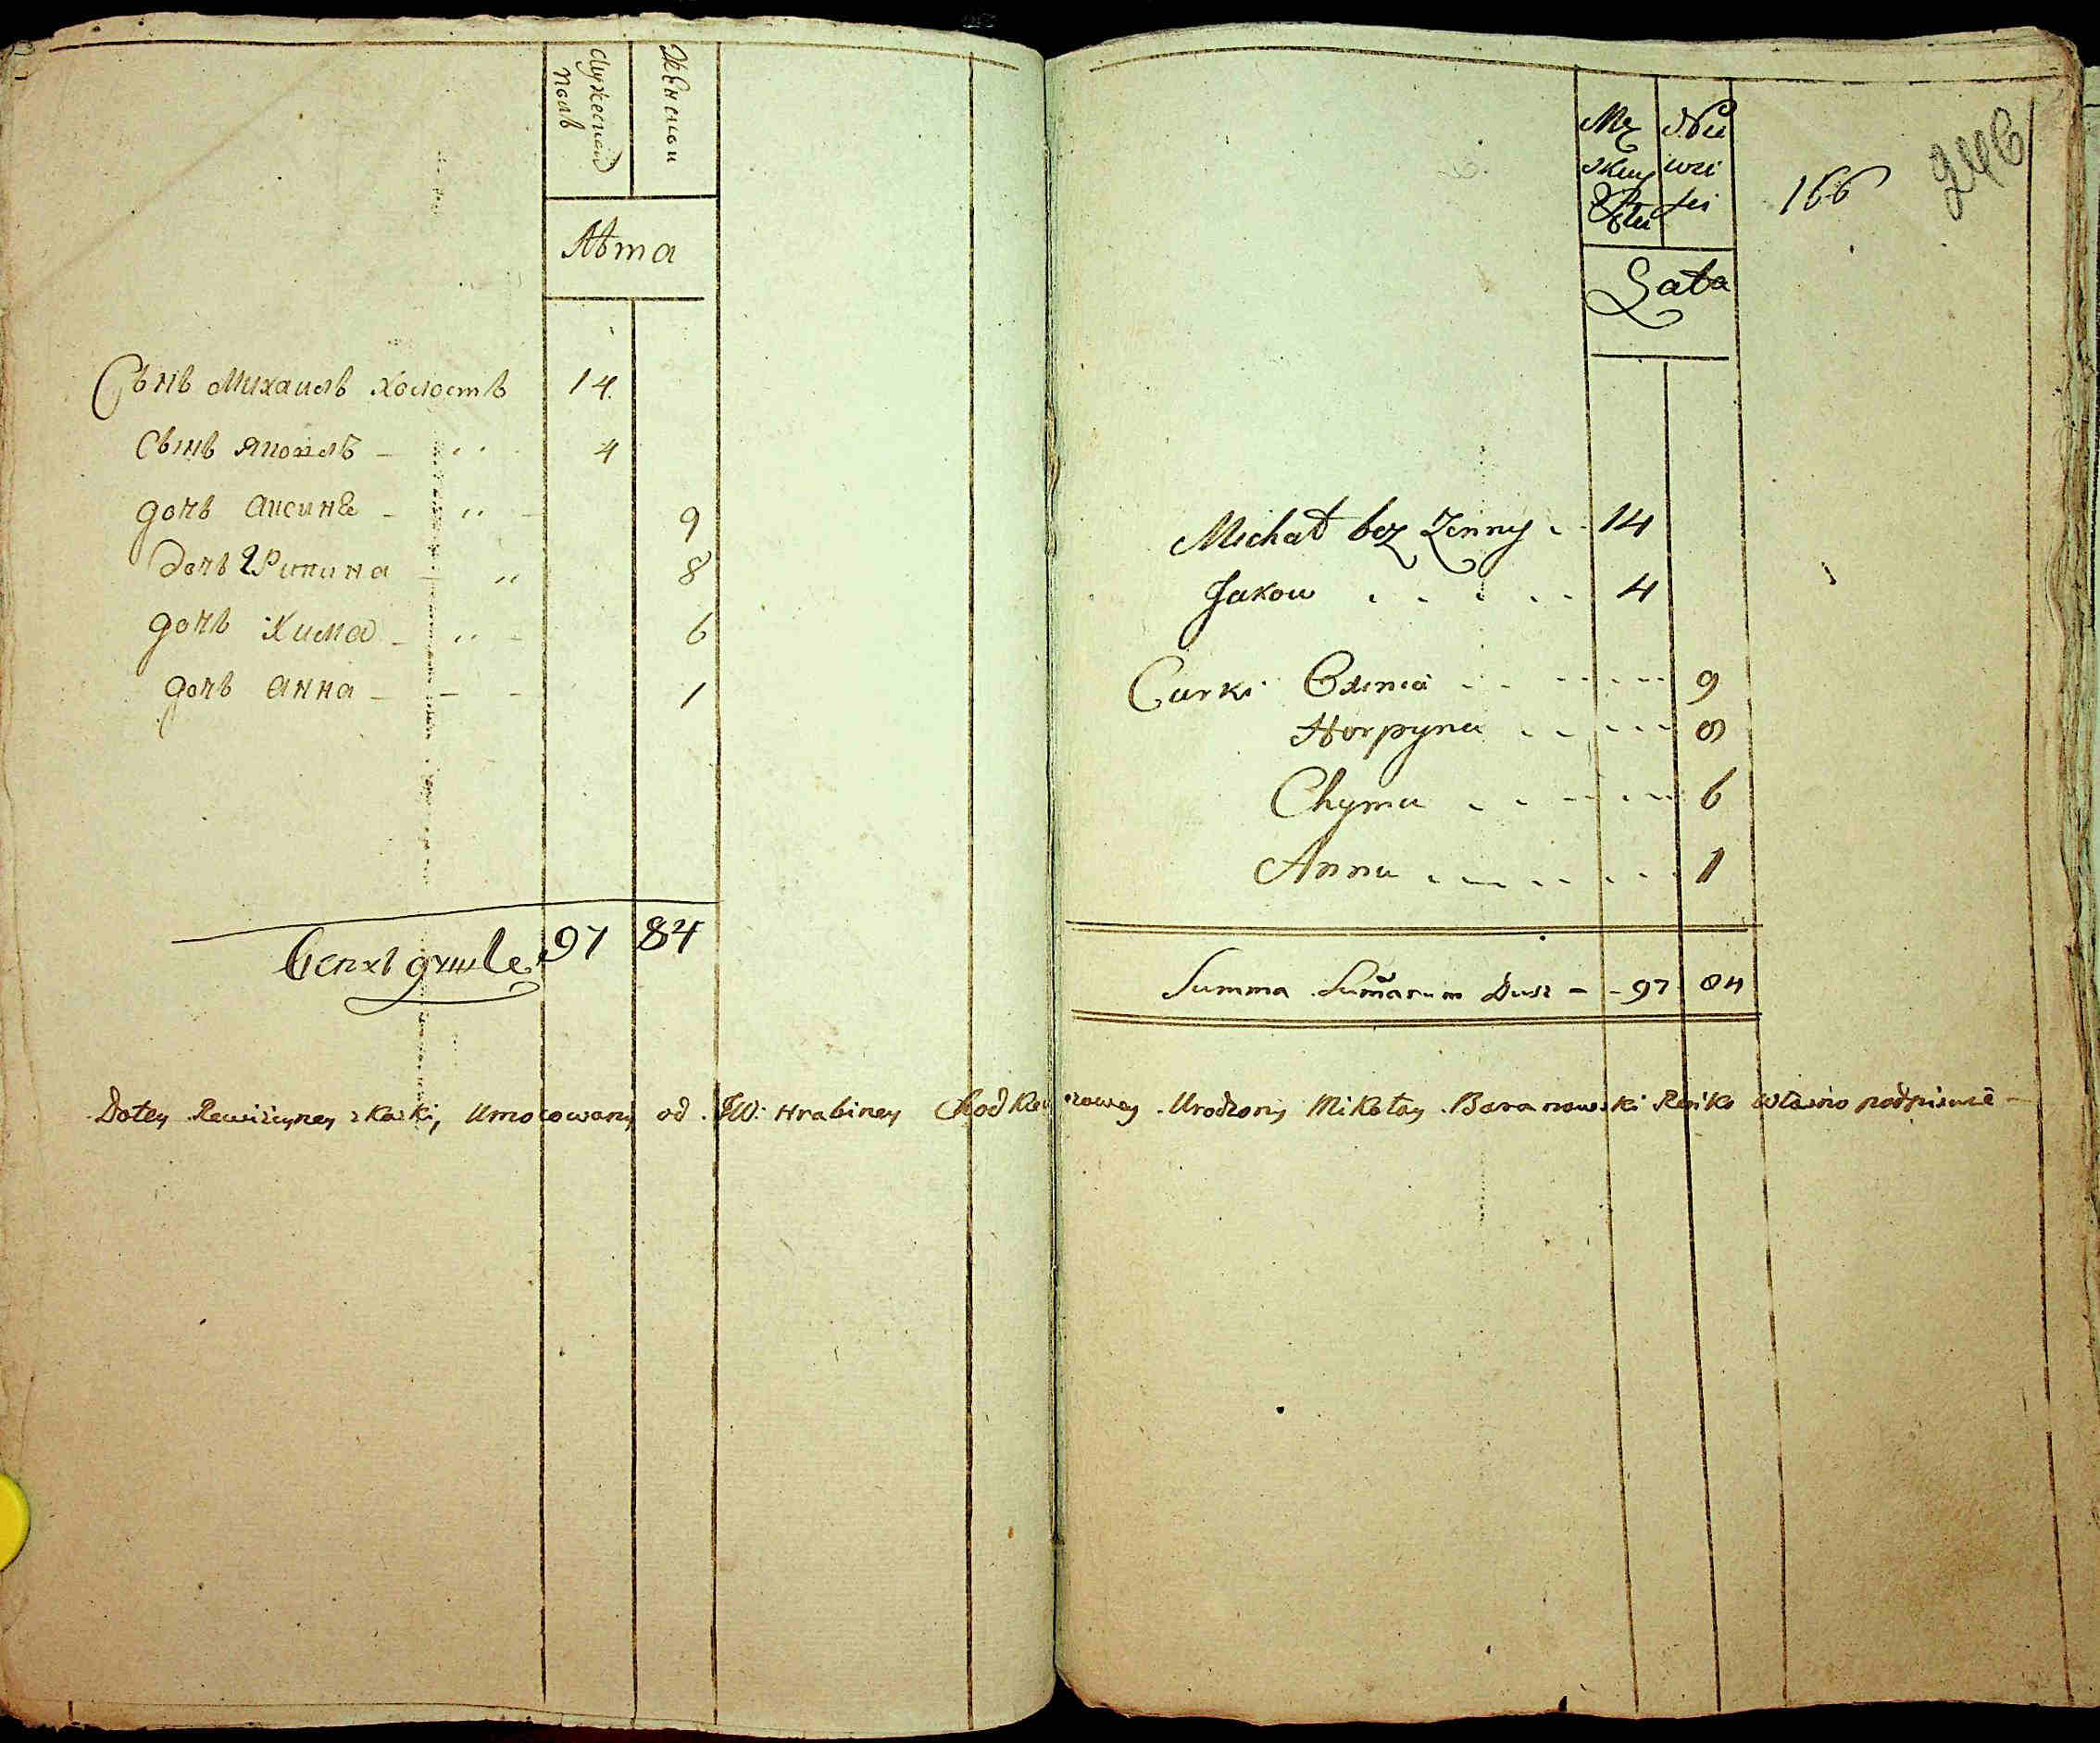 Мужескои Женскои
полъ
Лѣта
Сынъ Михаилъ холостъ 14
Сынъ Яковлъ 4
дочь Аксинѣ 9
дочь 8
дочь Хима 6
дочь Анна 1
Всехъ душъ 97 84
Mę Niu
skuy wie
Płei sci
166
246
Lata
Michał bez Zenny 14
Jakow 4
Curki Oxinia 9
Horpyna 8
Chyma 6
Anna 1
Summa Sum̃arum Dusz 97 84
Dotey Rewizyney skaski, Umocowany od JW: Hrabiney Chodkiewiczowey Urodzony Mikołay Baranowski Ręnko własno podpisuie